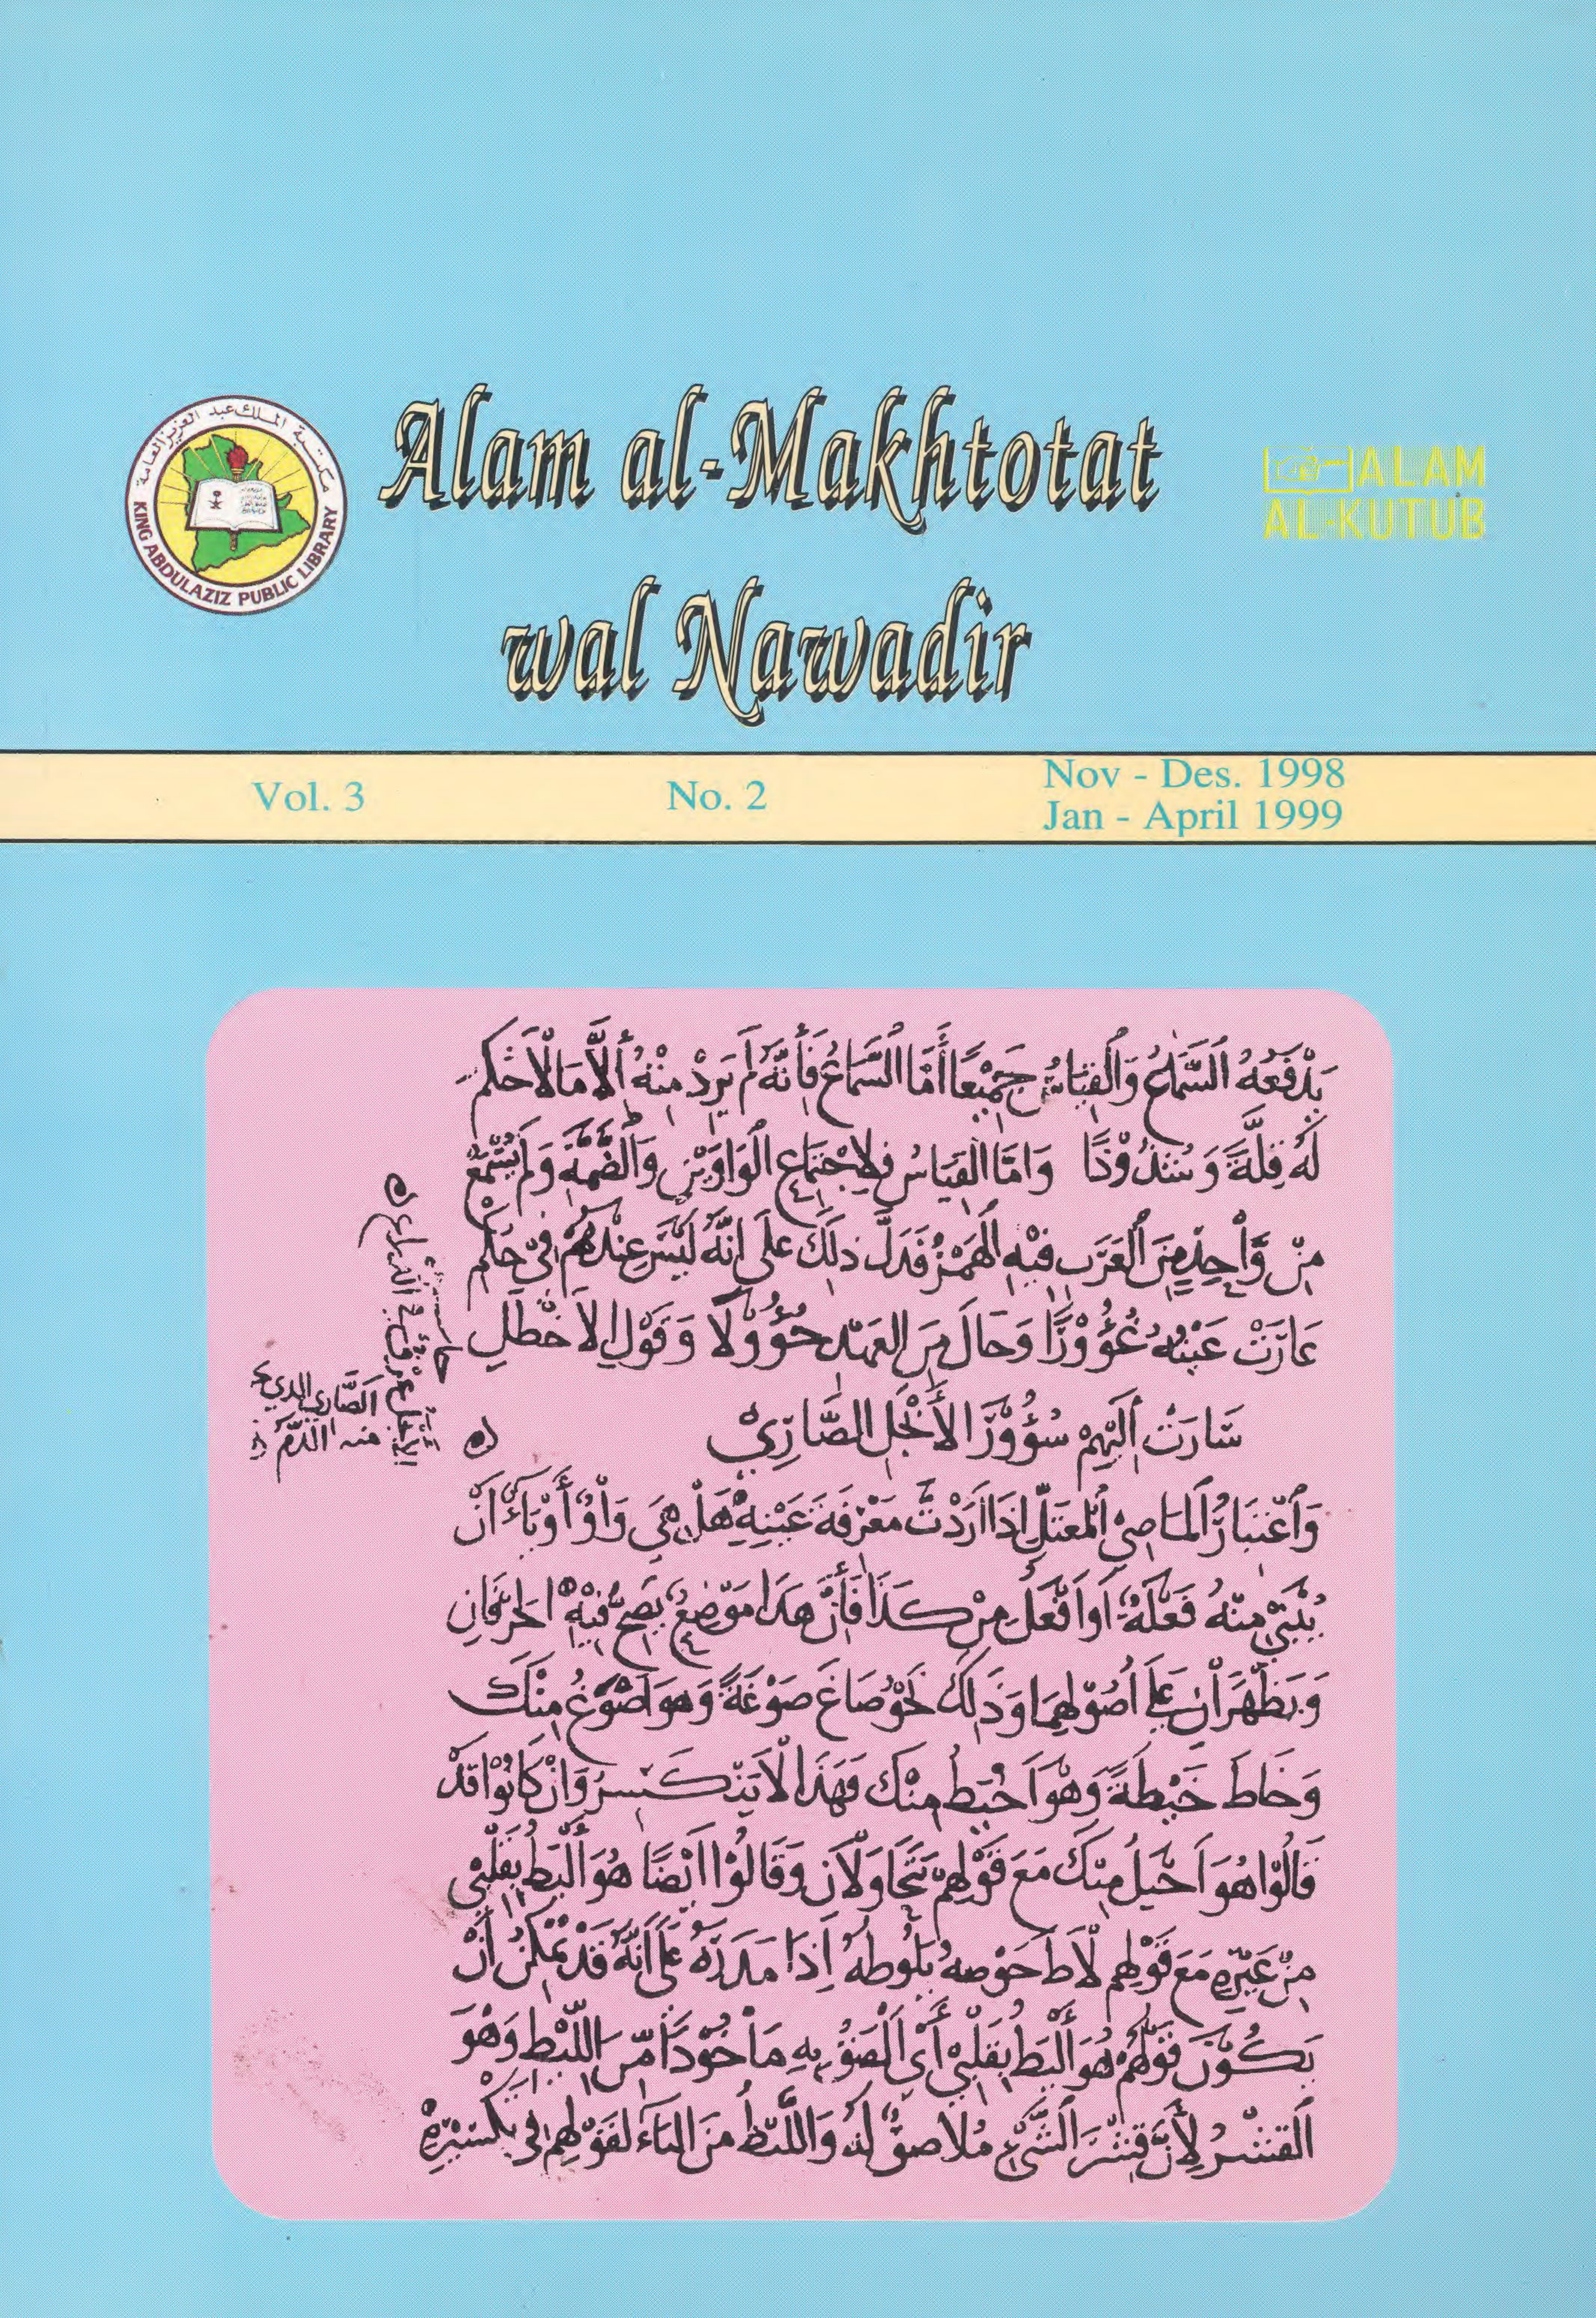 Alam al-Makhtotat
wal Nawadir
مكتبة الملك عبد العزيز العامة
KING ABDULAZIZ PUBLIC LIBRARY
ALAM
AL-KUTUB
Vol. 3
No. 2
Nov - Des. 1998
Jan - April 1999
يَدْفَعُهُ السَّمَاعُ وَالْقِيَاسُ جَمِيْعًا أَمَّا السَّمَاعُ فَأِنَّهُ لَمْ يَرِدْ مِنْهُ أِلَّا مَا لَاحُكْمَ
لَهُ قِلَّةً وَشُذُوْذًا وَامَّا الْقِيَاسُ فَلِاجْتِمَاعِ الْوَاوَيْنِ وَالضَّمَّةِ وَلَمْ يُسْمَعْ
مِنْ وَّاحِدٍ مِنَ الْعَرَبِ فِيْهِ الْهَمْزُ فَدَلَّ ذلِكَ عَلَى انَّهُ لَيْسَ عِنْدَهُمْ فِيْ حُكْمِ
عَارَتْ عَيْنُهُ غُؤُوْرًا وَحَالَ مِنَ الْعَهْدِ حُؤُوْلًا وَقَوْلِ الاَخْطَلِ
سَارَتْ اِلَيْهِمْ سُؤُوْرَ الأَبْجَلِ الضَّارِيْ
وَاعْتِبَارُ الْمَاضِيْ الْمُعْتَلِّ اِذَا ارَدْتَ مَعْرِفَةَ عَيْنِهِ هَلْ هِيَ وَاوٌ أَوْ يَاءٌ انْ
يُبْنَى مِنْهُ فَعْلَةٌ اَوْ اَفْعَلُ مِنْ كَذَا فَأِنَّ هَذَا مَوْضِعٌ يَصِحُّ فِيْهِ الْحَرْفَانِ
وَيَظْهَرَانِ عَلَى اُصُوْلِهِمَا وَذَلِكَ نَحْوُ صَاغَ صَوْغَةً وَهُوَ اَصْوَغُ مِنْكَ
وَخَاطَ خَيْطَةً وَهُوَ اَخْيَطُ مِنْكَ فَهَذَا لَا يَنْكَسِرُ وَانْ كَانُوْا قَدْ
قَالُوْا هُوَ اَحْيَلُ مِنْكَ مَعَ قَوْلِهِمْ يَتَحَاوَلَانِ وَقَالُوْا اَيْضًا هُوَ أَلْيَطُ بِقَلْبِيْ
مِنْ غَيْرِهِ مَعَ قَوْلِهِم لَاطَ حَوْضَهُ يَلُوْطُهُ اِذَا مَدَرَهُ عَلَى أَنَّهُ قَدْ يُمْكِنُ أَنْ
يَكُوْنَ قَوْلُهُمْ هُوَ أَلْيَطُ بِقَلْبِيْ أَيْ اَلْصَقُ بِهِ مَاْخُوْذًا مِّنَ اللِّيْطِ وَهُوَ
الْقِشْرُ لِأَنَّ قِشْرَ الشَّيْءِ مُلَاصِقٌ لَهُ وَاللِّيْطُ مِنَ الْيَاءِ لِقَوْلِهِمْ فِيْ تَكْسِيْرِهِ
الضَّارِي الذي
منه الدَّمُ